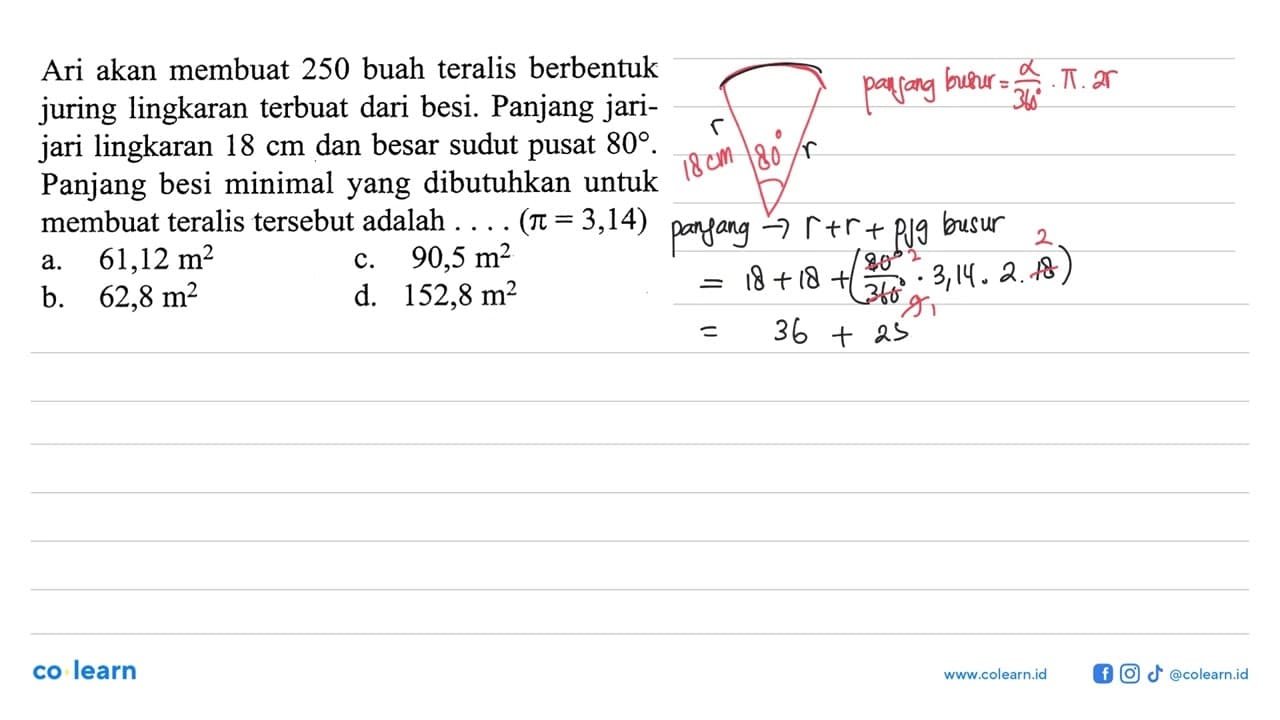 Ari akan membuat 250 buah teralis berbentuk
juring lingkaran terbuat dari besi. Panjang jari-
jari lingkaran 18 cm dan besar sudut pusat 80°.
Panjang besi minimal yang dibutuhkan untuk
membuat teralis tersebut adalah . . . . (π = 3,14)
a. 61,12 m² c. 90,5 m²
b. 62,8 m² d. 152,8 m²
panjang busur = α/360° . π . 2r
r
18 cm 80° r
panjang → r + r + pjg busur
= 18 + 18 + (80°/360° . 3,14 . 2 . 18)
2 9 1 2
= 36 + 25
co learn
www.colearn.id @colearn.id